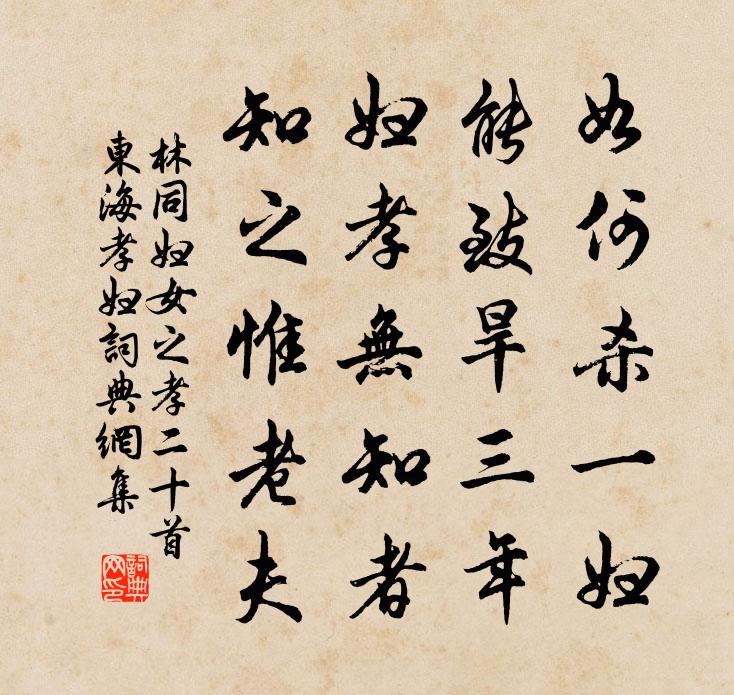 如何杀一妇
能致旱三年
妇孝無知者
知之惟老夫
林同妇女之孝二十首
東海孝妇詞典網集
詞典网印